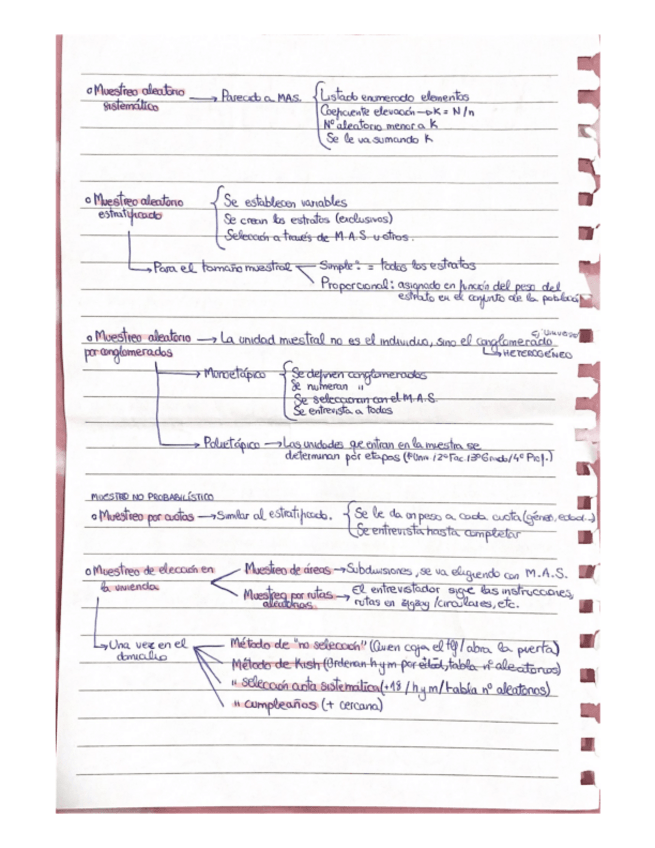 o Muestreo aleatorio sistemático → Parecido a MAS.
Listado enumerado elementos
Coeficiente elevación → K = N/n
Nº aleatorio menor a K
Se le va sumando K
o Muestreo aleatorio estratificado
Se establecen variables
Se crean los estratos (exclusivos)
Selección a través de M.A.S u otros.
Para el tamaño muestral
Simple: = todos los estratos
Proporcional: asignado en función del peso del
estrato en el conjunto de la población
o Muestreo aleatorio por conglomerados → La unidad muestral no es el individuo, sino el conglomerado
HETEROGÉNEO
→ Monoetápico
Se definen conglomerados
Se numeran "
Se seleccionan con el M.A.S.
Se entrevista a todos
→ Polietápico → Las unidades que entran en la muestra se
determinan por etapas (1º Univ. / 2º Fac. / 3º Grado / 4º Prof.)
MUESTREO NO PROBABILÍSTICO
o Muestreo por cuotas → Similar al estratificado.
Se le da un peso a cada cuota (género, edad..)
Se entrevista hasta completar
o Muestreo de elección en la vivienda
Muestreo de áreas → Subdivisiones, se va eligiendo con M.A.S.
Muestreo por rutas aleatorias → El entrevistador sigue las instrucciones,
rutas en zigzag / circulares, etc.
Una vez en el domicilio
Método de "no selección" (Quien coja el tlf / abra la puerta)
Método de Kish (Ordenan h y m por edad, tabla nº aleatorios)
" selección cuota sistemática (+18 / h y m / tabla nº aleatorios)
" cumpleaños (+ cercano)